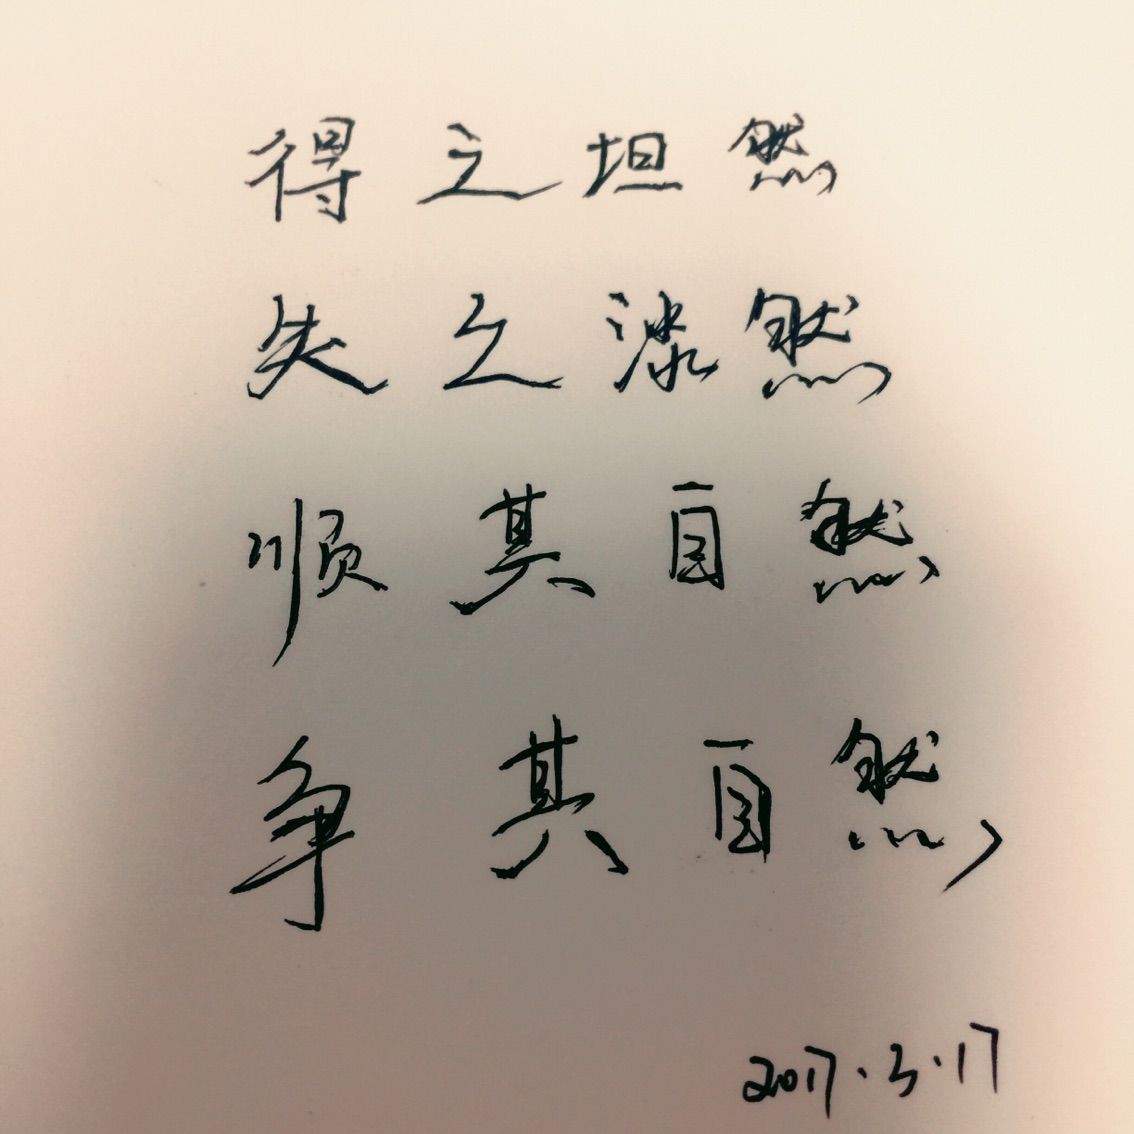 得之坦然
失之淡然
顺其自然
争其自然
2017.3.17